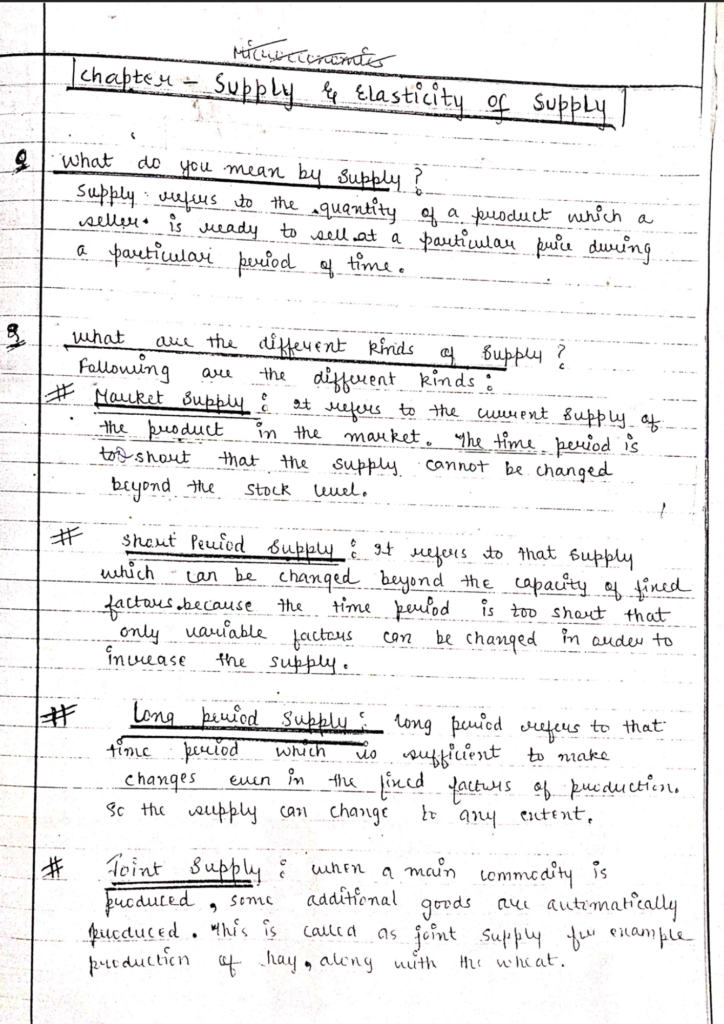 Microeconomics
Chapter - Supply & Elasticity of Supply
Q What do you mean by Supply?
Supply: refers to the quantity of a product which a
seller is ready to sell at a particular price during
a particular period of time.
Q What are the different kinds of Supply?
Following are the different kinds:
# Market Supply: It refers to the current supply of
the product in the market. The time period is
too short that the supply cannot be changed
beyond the stock level.
# Short Period Supply: It refers to that supply
which can be changed beyond the capacity of fixed
factors because the time period is too short that
only variable factors can be changed in order to
increase the supply.
# Long period Supply: Long period refers to that
time period which is sufficient to make
changes even in the fixed factors of production.
So the supply can change to any extent.
# Joint Supply: when a main commodity is
produced, some additional goods are automatically
produced. This is called as joint supply for example
production of hay, along with the wheat.